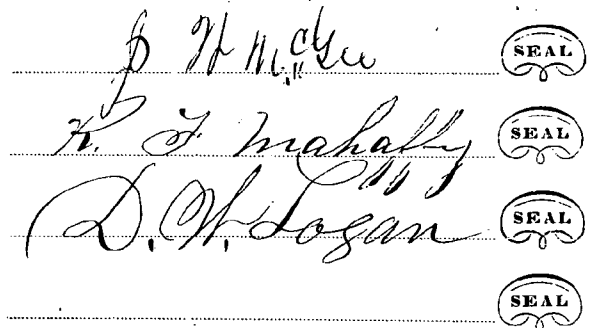 J W McGee SEAL
K. F. Mahaffy SEAL
D. W. Logan SEAL
SEAL